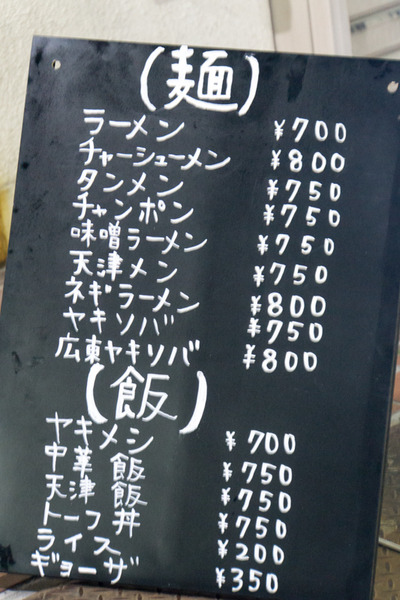 (麺)
ラーメン ¥700
チャーシューメン ¥800
タンメン ¥750
チャンポン ¥750
味噌ラーメン ¥750
天津メン ¥750
ネギラーメン ¥800
ヤキソバ ¥750
広東ヤキソバ ¥800
(飯)
ヤキメシ ¥700
中華飯 ¥750
天津飯 ¥750
トーフ丼 ¥750
ライス ¥200
ギョーザ ¥350